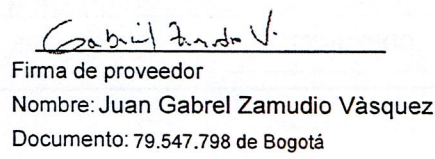 Gabriel Zamudio V.
Firma de proveedor
Nombre: Juan Gabrel Zamudio Vàsquez
Documento: 79.547.798 de Bogotá